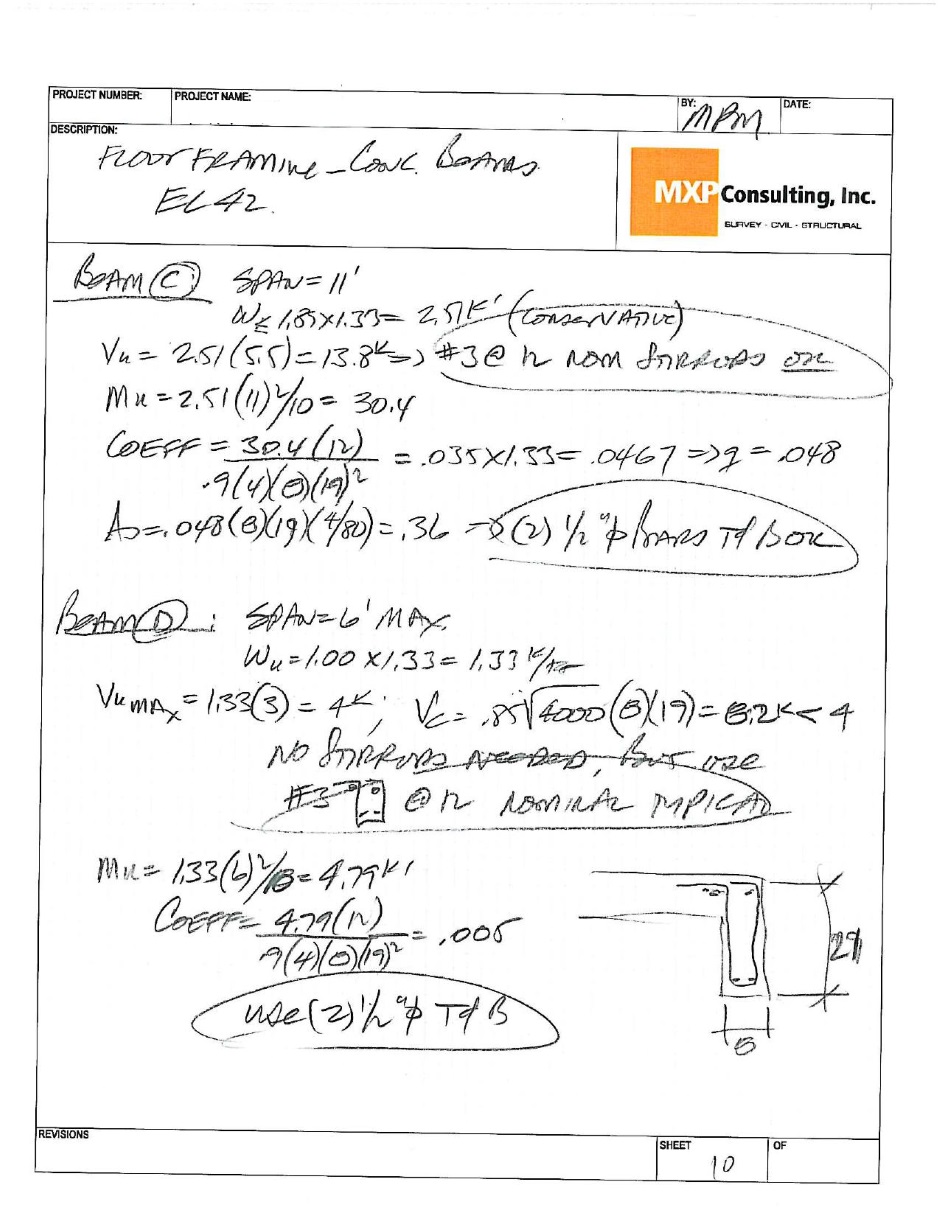 PROJECT NUMBER: PROJECT NAME: BY: MPM DATE:
DESCRIPTION:
FLOOR FRAMING - CONC. BEAMS
EL 42.
MXP Consulting, Inc.
SURVEY - CIVIL - STRUCTURAL
BEAM (C) SPAN = 11'
1.85 x 1.33 = 2.51 K' (CONSERVATIVE)
Vu = 2.51 (5.5) = 13.8K => #3 @ 12 NOM STIRRUPS OK
Mu = 2.51 (11)²/10 = 30.4
COEFF = 30.4 (12) / .9(4)(8)(19)² = .035 x 1.33 = .0467 => q = .048
As = .048 (8)(19)(4/80) = .36 → (2) 1/2"φ BARS T&B OK
BEAM (D) : SPAN = 6' MAX.
Wu = 1.00 x 1.33 = 1.33 K/
Vu MAX = 1.33(3) = 4K; Vc = .85√4000 (8)(19) = 8.2K < 4
NO STIRRUPS NEEDED, BUT USE
#3 @ 12 NOMINAL TYPICAL
Mu = 1.33(6)²/8 = 4.79 K'
COEFF = 4.79 (12) / .9(4)(8)(19)² = .005
USE (2) 1/2"φ T&B
8
REVISIONS
SHEET 10 OF